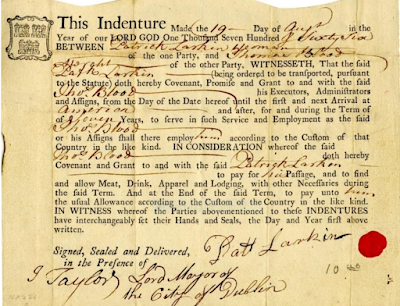 This Indenture Made the 19 Day of Augt in the
Year of our LORD GOD One Thousand Seven Hundred & Sixty Six
BETWEEN Patrick Larken Yeoman
of the one Party, and Thomas Blood
of the other Party, WITNESSETH, That the said
Patk Larkin (being orderd to be transported, pursuant
to the Statute) doth hereby Covenant, Promise and Grant to and with the said
Thos Blood his Executors, Administrators
and Assigns, from the Day of the Date hereof until the first and next Arrival at
America and after, for and during the Term of
Seven Years, to serve in such Service and Employment as the said
Thos Blood
or his Assigns shall there employ him according to the Custom of that
Country in the like kind. IN CONSIDERATION whereof the said
Thos Blood doth hereby
Covenant and Grant to and with the said Patrick Larken
to pay for his Passage, and to find
and allow Meat, Drink, Apparel and Lodging, with other Necessaries during
the said Term. And at the End of the said Term, to pay unto him
the usual Allowance according to the Custom of the Country in the like kind.
IN WITNESS whereof the Parties abovementioned to these INDENTURES
have interchangeably set their Hands and Seals, the Day and Year first above
written.
Signed, Sealed and Delivered,
in the Presence of
Patt Larkin
J Taylor Lord Mayor of
the City of Dublin